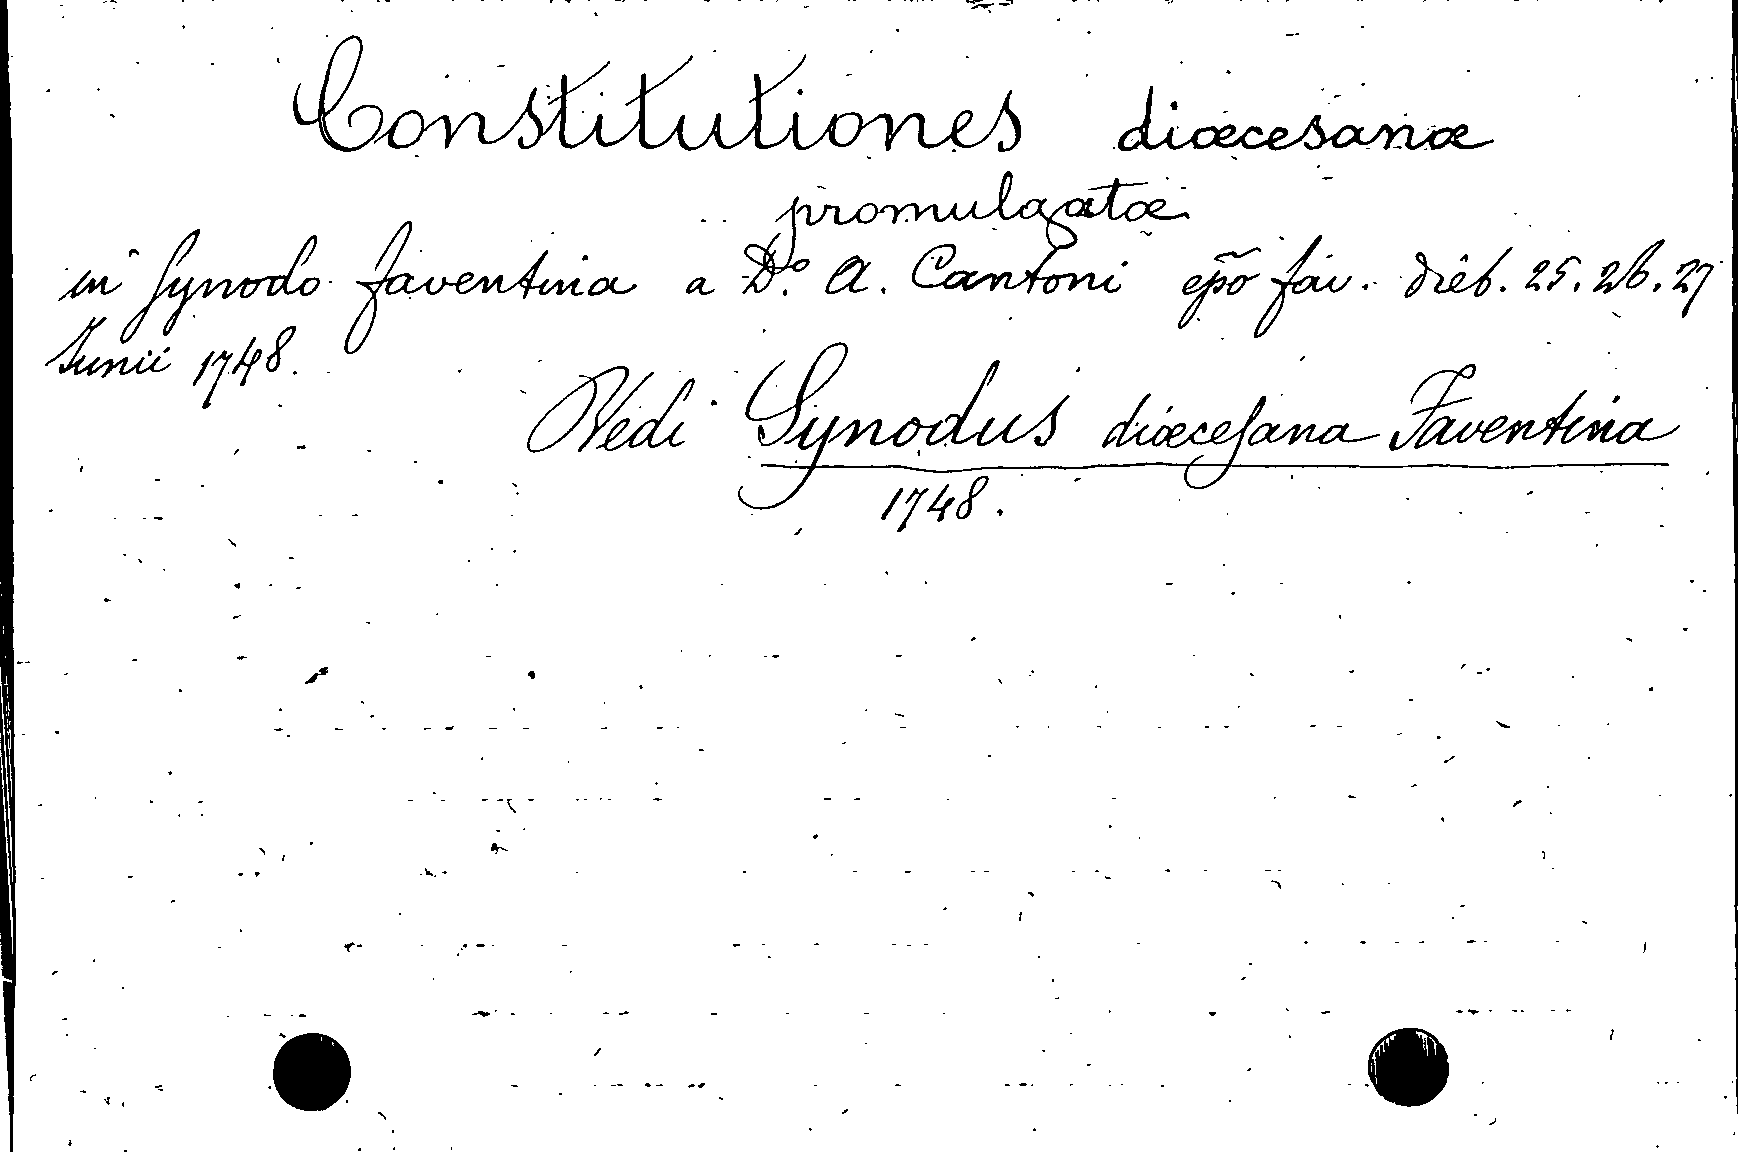 Constitutiones diœcesanæ
promulgatæ
in Synodo faventina a D.º A. Cantoni epõ fav. dieb. 25. 26. 27
Junii 1748.
Vedi Synodus diœcesana Faventina
1748.